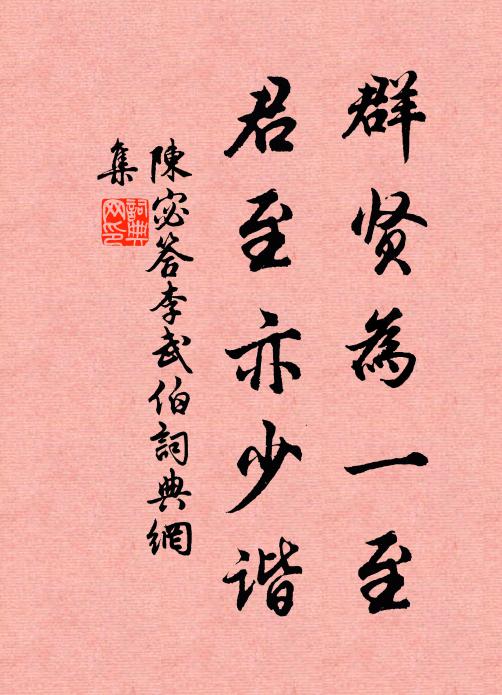 群贤為一至
君至亦少谐
陳宓答李武伯詞典網
集
詞典網印